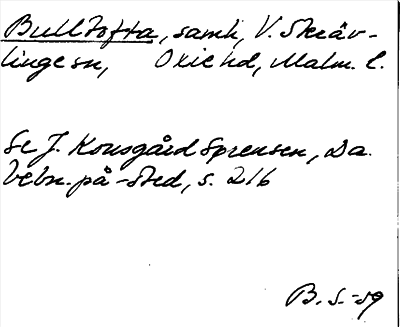 Bulltofta, saml, V. Skräv-
lingesn, Oxie hd, Malm. l.
Se J. Kousgård Sørensen, Da.
bebn. på -sted, s. 216
B. S. -59